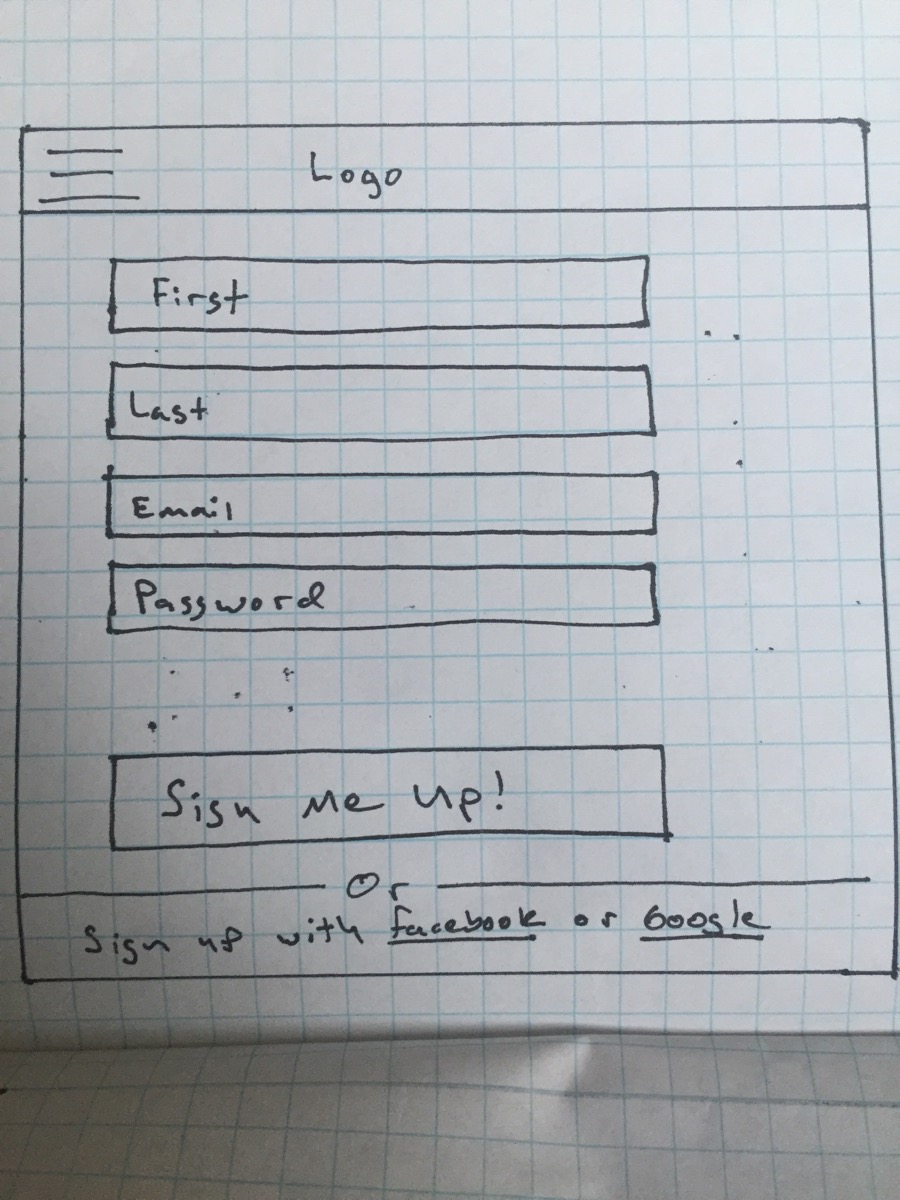 Logo
First
Last
Email
Password
Sign me up!
Or
Sign up with facebook or Google